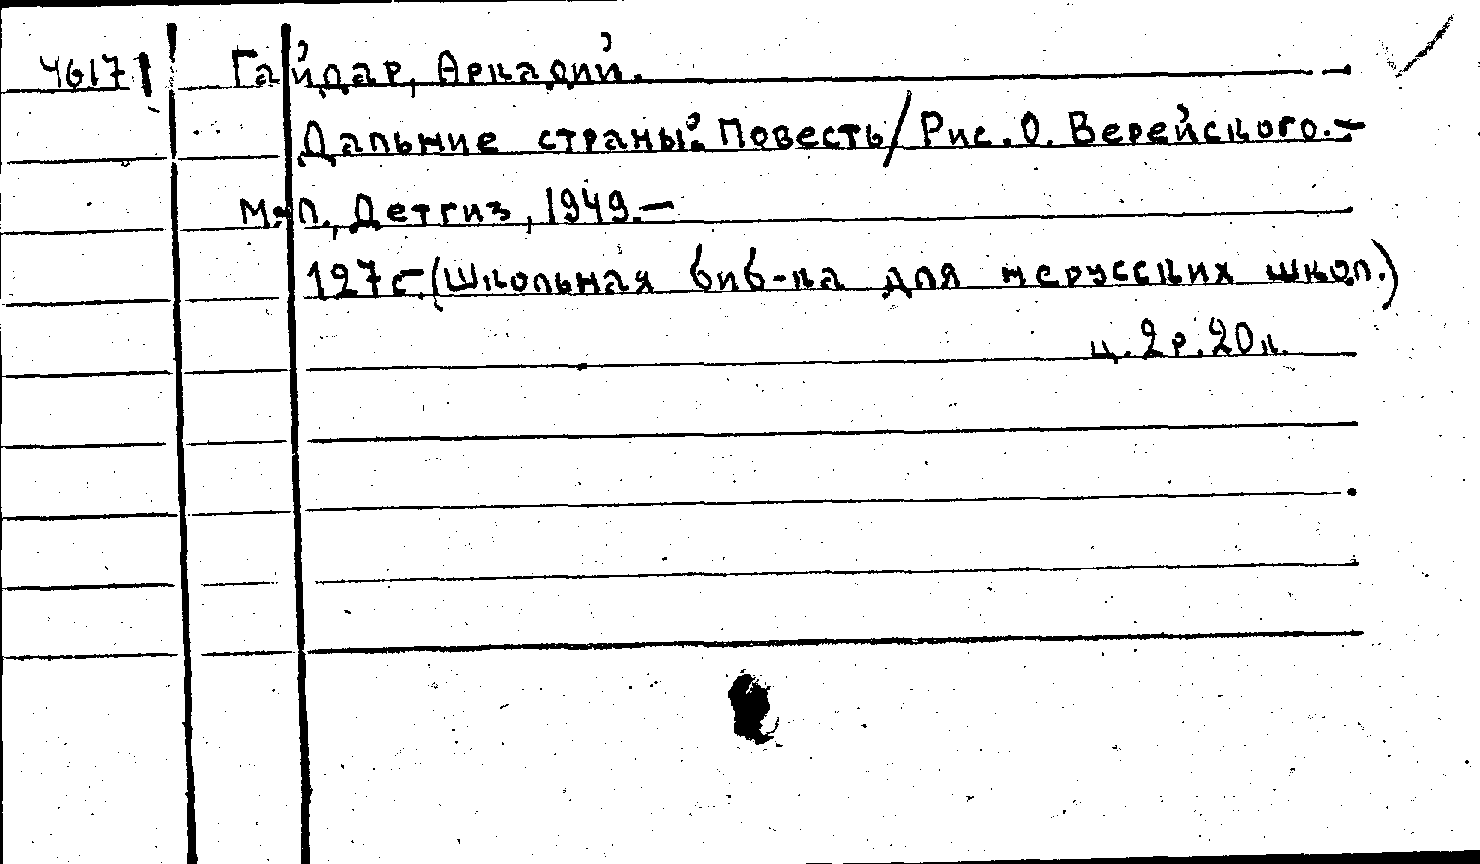 Ч617 Гайдар, Аркадий.
Дальние страны: Повесть/Рис. О. Верейского.-
М.-Л., Детгиз, 1949.-
127 с.(Школьная биб-ка для нерусских школ.)
ц. 2 р. 20 к.